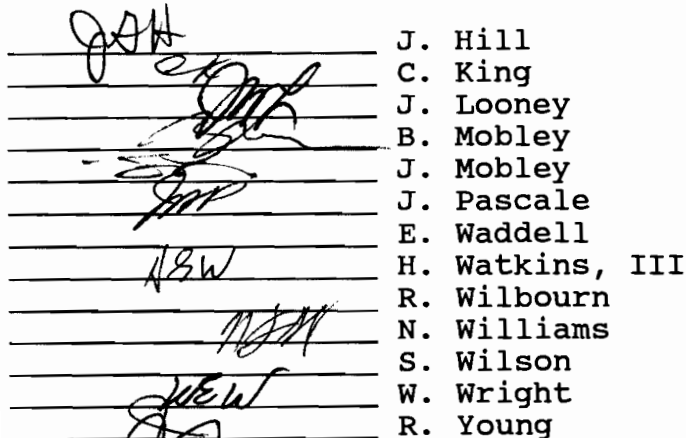 JGH J. Hill
CK C. King
J. Looney
B. Mobley
J. Mobley
JMP J. Pascale
E. Waddell
HEW H. Watkins, III
R. Wilbourn
N. Williams
S. Wilson
WEW W. Wright
R. Young